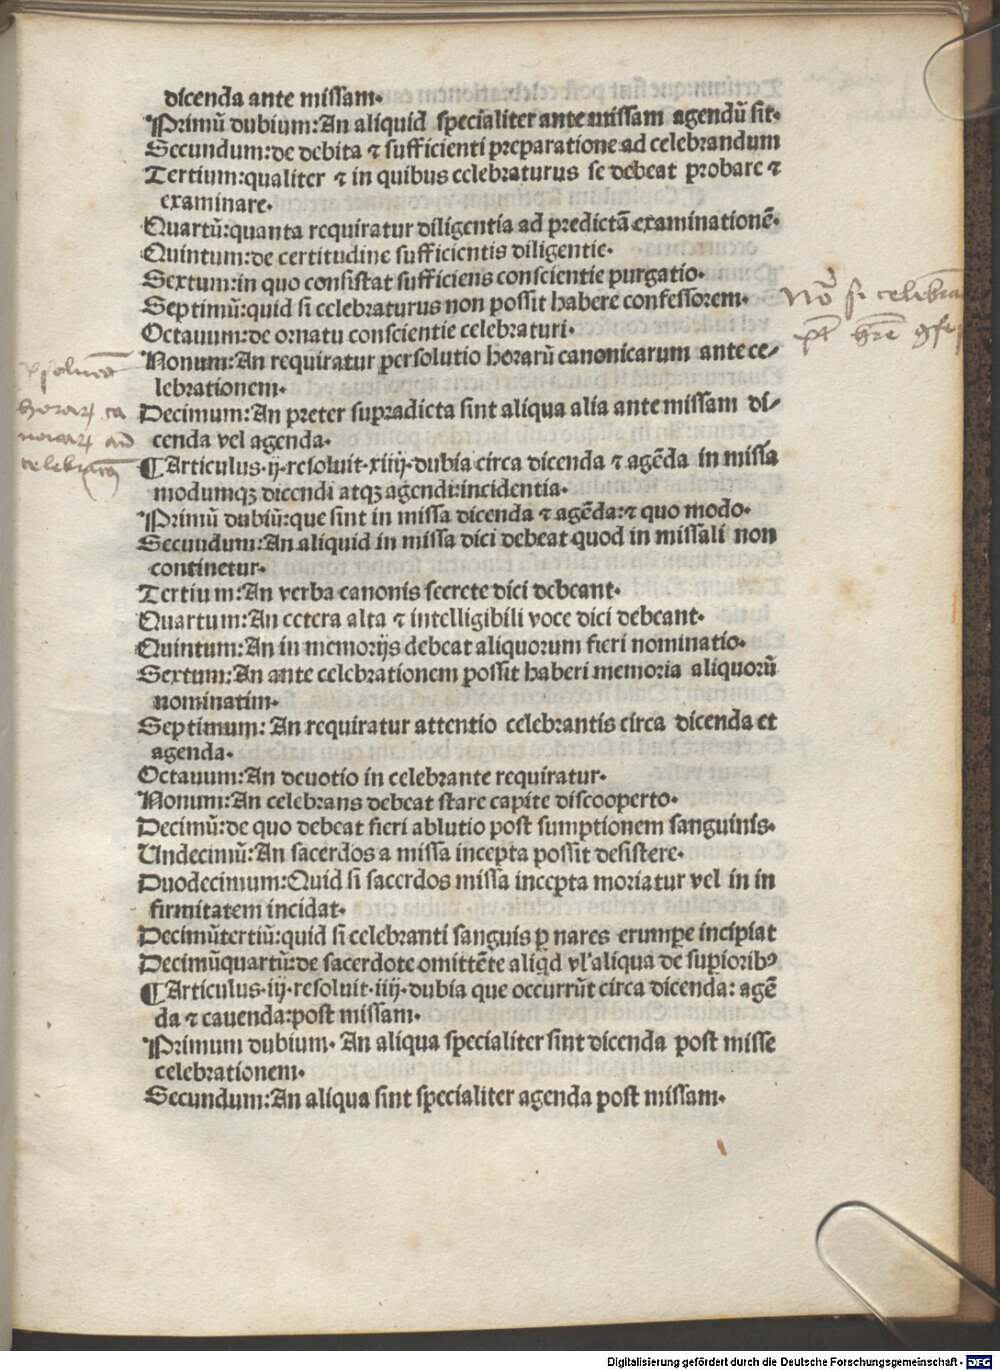 dicenda ante missam.
Primū dubium: An aliquid specialiter ante missam agendū sit.
Secundum: de debita ⁊ sufficienti preparatione ad celebrandum
Tertium: qualiter ⁊ in quibus celebraturus se debeat probare ⁊
examinare.
Quartū: quanta requiratur diligentia ad predictā examinationē.
Quintum: de certitudine sufficientis diligentie.
Sextum: in quo consistat sufficiens conscientie purgatio.
Septimū: quid si celebraturus non possit habere confessorem.
Octauum: de ornatu conscientie celebraturi.
Nonum: An requiratur persolutio horarū canonicarum ante ce-
lebrationem.
Decimum: An preter supradicta sint aliqua alia ante missam di-
cenda vel agenda.
¶ Articulus .ij. resoluit .xiiij. dubia circa dicenda ⁊ agēda in missa
modumqꝫ dicendi atqꝫ agendi: incidentia.
Primū dubiū: que sint in missa dicenda ⁊ agēda: ⁊ quo modo.
Secundum: An aliquid in missa dici debeat quod in missali non
continetur.
Tertium: An verba canonis secrete dici debeant.
Quartum: An cetera alta ⁊ intelligibili voce dici debeant.
Quintum: An in memorijs debeat aliquorum fieri nominatio.
Sextum: An ante celebrationem possit haberi memoria aliquorū
nominatim.
Septimum: An requiratur attentio celebrantis circa dicenda et
agenda.
Octauum: An deuotio in celebrante requiratur.
Nonum: An celebrans debeat stare capite discooperto.
Decimū: de quo debeat fieri ablutio post sumptionem sanguinis.
Undecimū: An sacerdos a missa incepta possit desistere.
Duodecimum: Quid si sacerdos missa incepta moriatur vel in in
firmitatem incidat.
Decimūtertiū: quid si celebranti sanguis ꝑ nares erumpe incipiat
Decimūquartū: de sacerdote omittēte aliqd vl' aliqua de supioribꝰ
¶ Articulus .iij. resoluit .iiij. dubia que occurrūt circa dicenda: agē
da ⁊ cauenda: post missam.
Primum dubium. An aliqua specialiter sint dicenda post misse
celebrationem.
Secundum: An aliqua sint specialiter agenda post missam.
horaꝝ ca
Nō si celibra
Digitalisierung gefördert durch die Deutsche Forschungsgemeinschaft - DFG